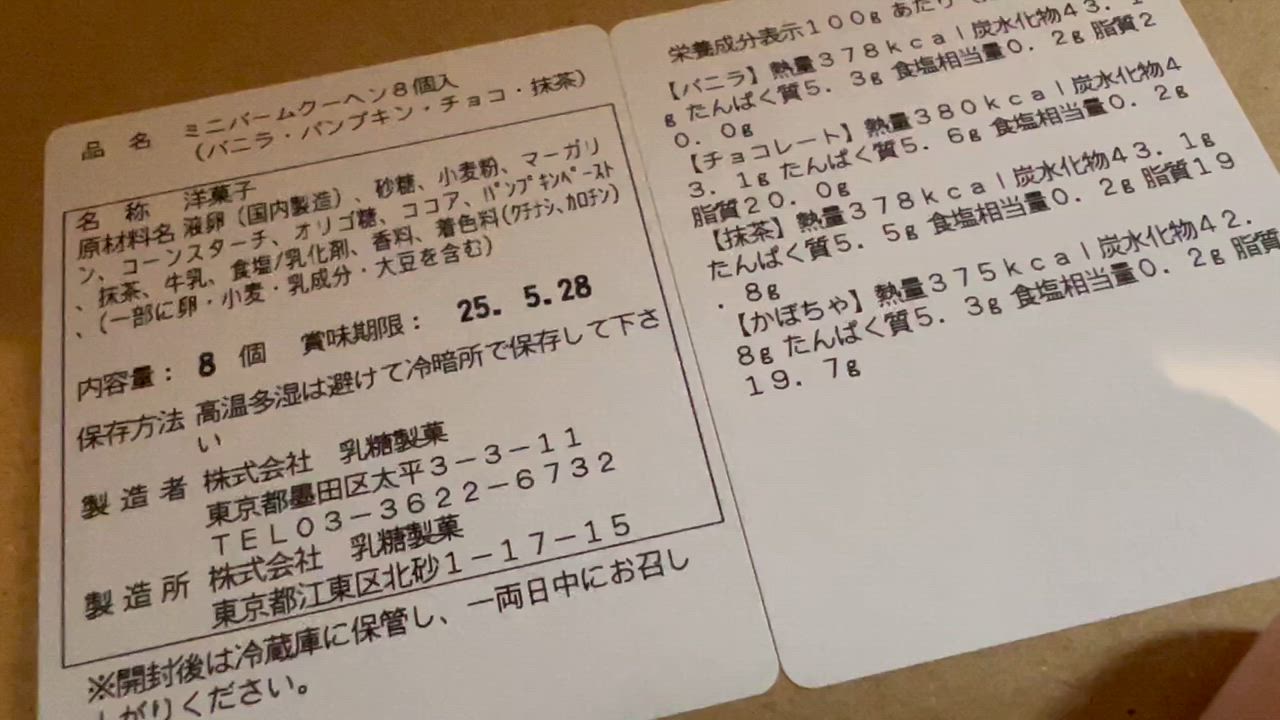 品 名 ミニバームクーヘン8個入
(バニラ・パンプキン・チョコ・抹茶)
名 称 洋菓子
原材料名 液卵(国内製造)、砂糖、小麦粉、マーガリ
ン、コーンスターチ、オリゴ糖、ココア、パンプキンペースト
、抹茶、牛乳、食塩/乳化剤、香料、着色料(クチナシ、カロチン)
、(一部に卵・小麦・乳成分・大豆を含む)
内容量: 8 個 賞味期限: 25. 5.28
保存方法 高温多湿は避けて冷暗所で保存して下さ
い
製造者 株式会社 乳糖製菓
東京都墨田区太平3-3-11
TEL03-3622-6732
製造所 株式会社 乳糖製菓
東京都江東区北砂1-17-15
※開封後は冷蔵庫に保管し、一両日中にお召し
上がりください。
栄養成分表示100g あたり
【バニラ】熱量378kcal炭水化物43.1
gたんぱく質5.3g 食塩相当量0.2g 脂質2
0.0g
【チョコレート】熱量380kcal炭水化物4
3.1g たんぱく質5.6g 食塩相当量0.2g
脂質20.0g
【抹茶】熱量378kcal炭水化物43.1g
たんぱく質5.5g 食塩相当量0.2g 脂質19
.8g
【かぼちゃ】熱量375kcal炭水化物42.
8g たんぱく質5.3g 食塩相当量0.2g 脂質
19.7g